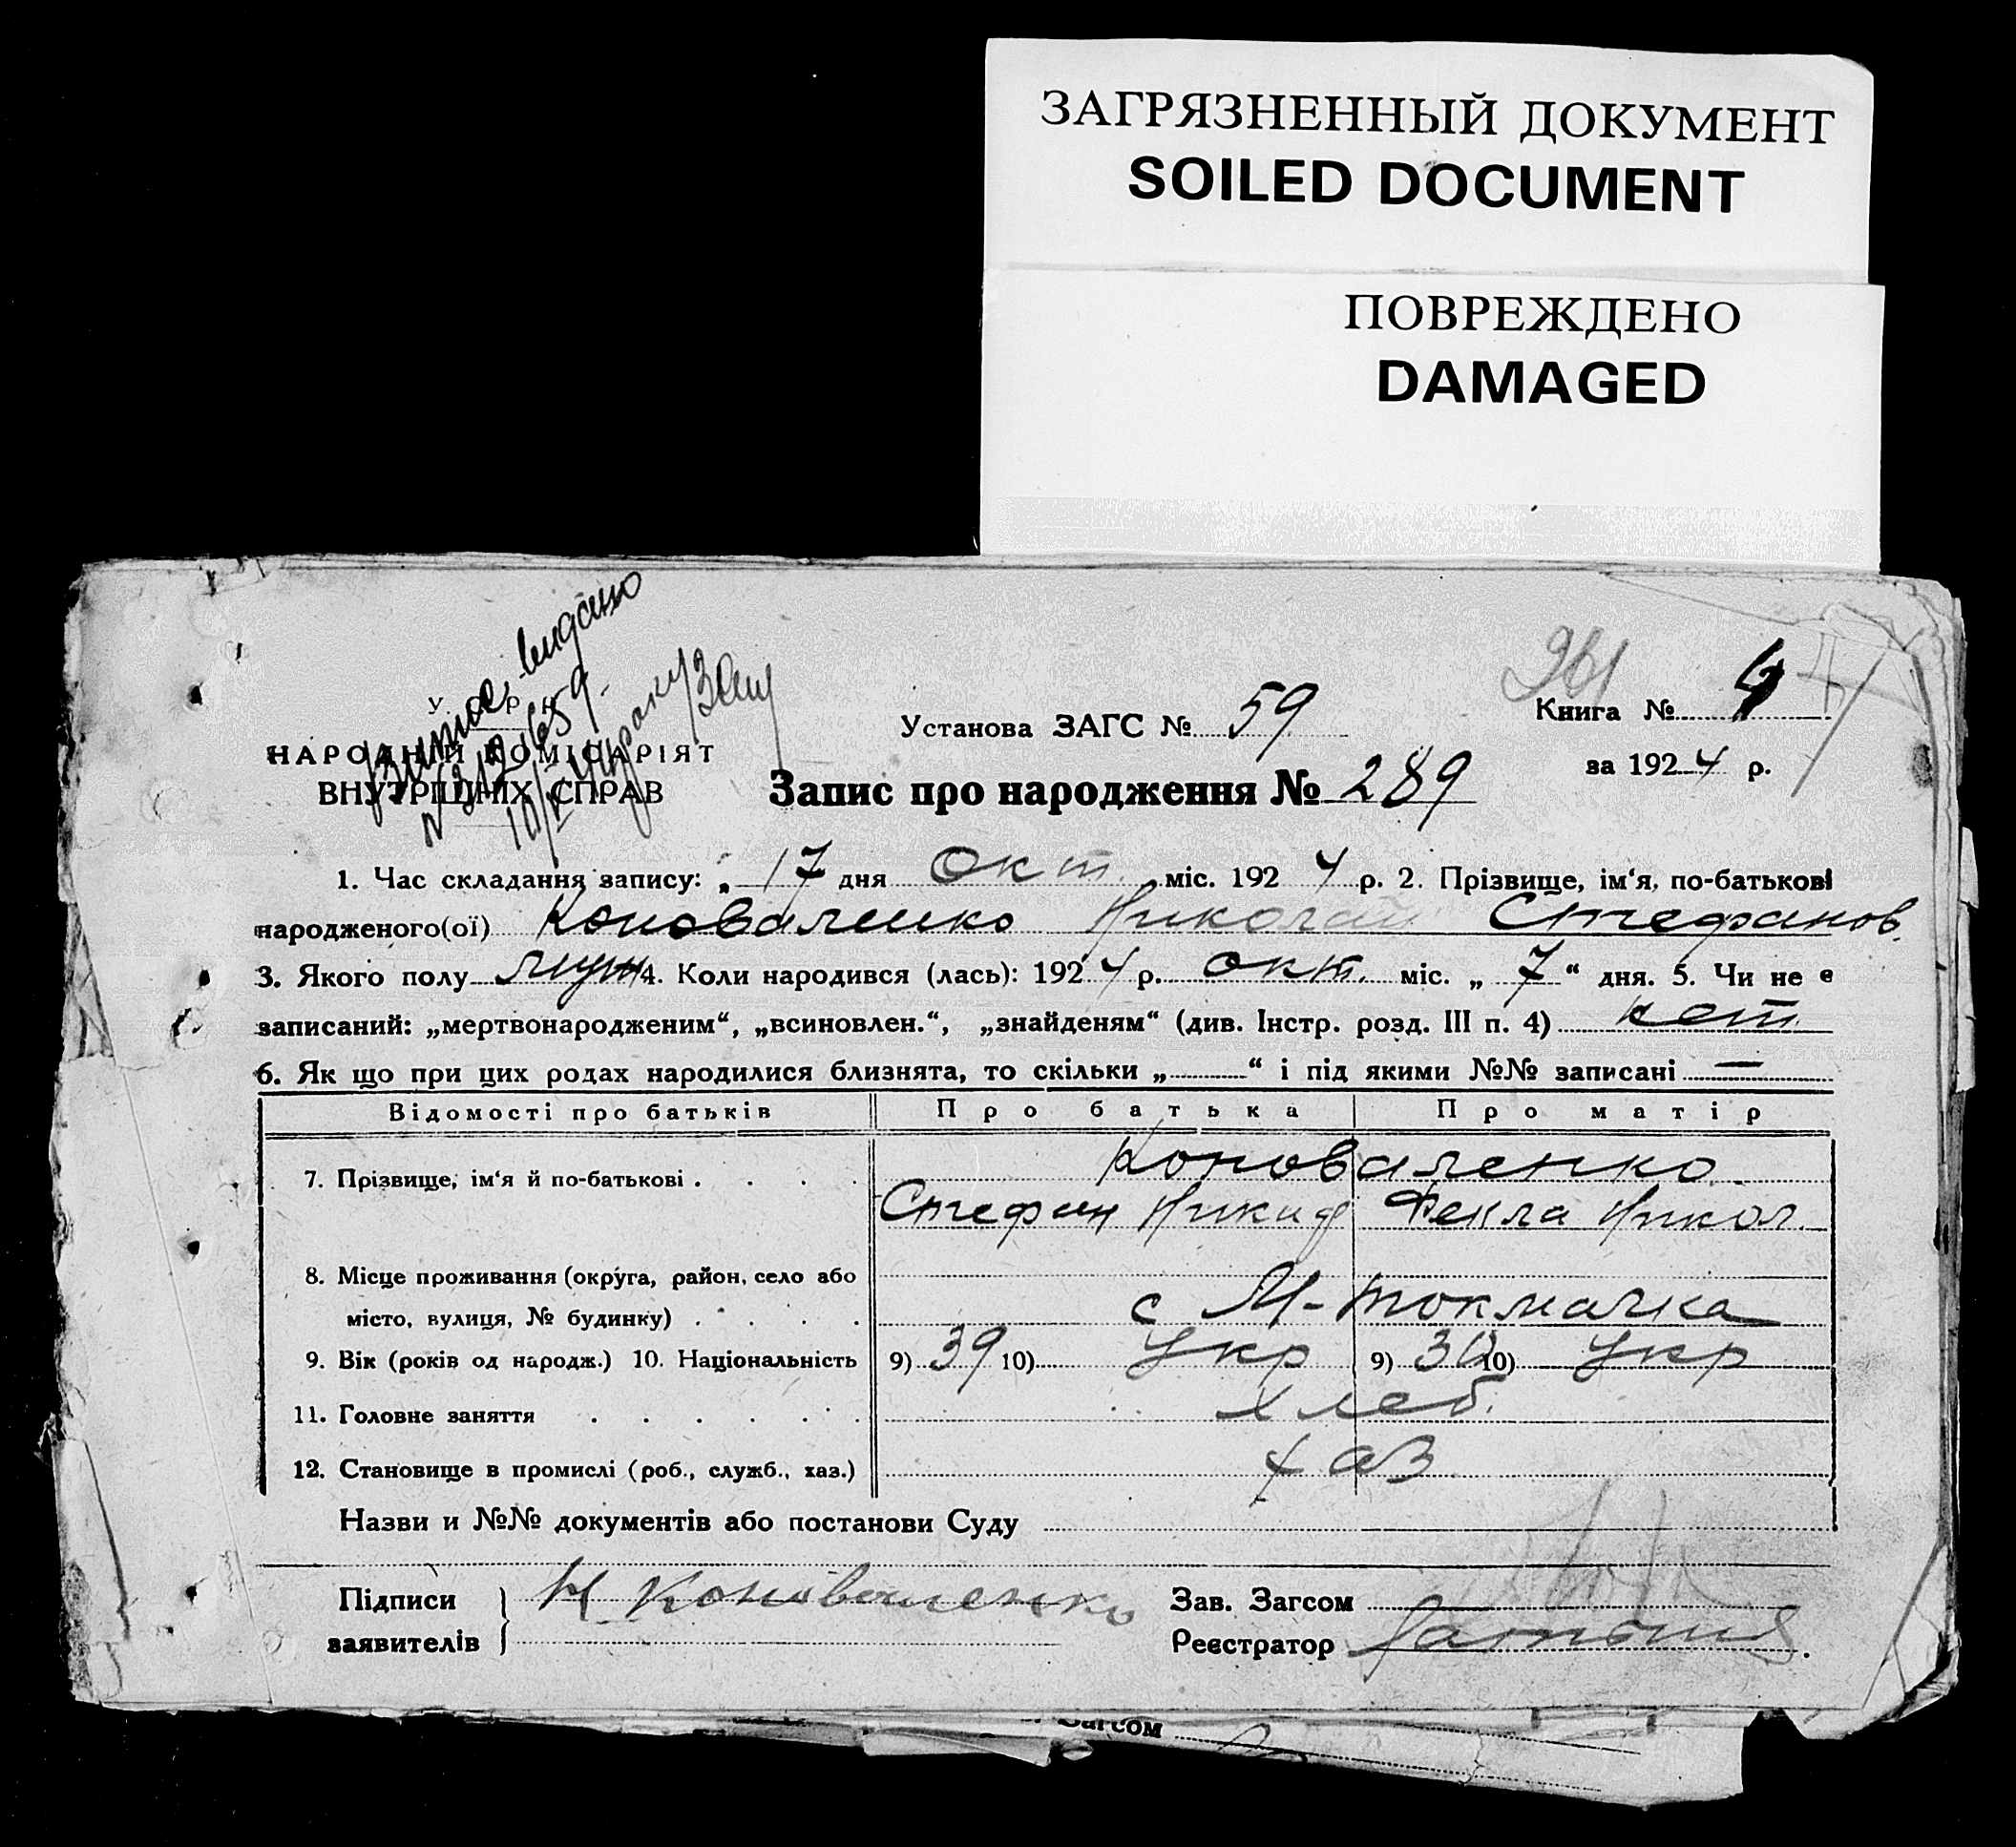 ЗАГРЯЗНЕННЫЙ ДОКУМЕНТ
SOILED DOCUMENT
ПОВРЕЖДЕНО
DAMAGED
видано
У. Р.
НАРОДНІЙ КОМІСАРІЯТ
ВНУТРІШНІХ СПРАВ
Установа ЗАГС № 59
Книга № 4
за 1924 р.
Запис про народження № 289
1. Час складання запису: „ 17 дня Окт. міс. 1924 р. 2. Прізвище, ім‘я, по-батькові
народженого(ої) Коноваленко Николай Стефанов.
3. Якого полу муж 4. Коли народився (лась): 1924 р. окт. міс. „ 7 “ дня. 5. Чи не є
записаний: „мертвонародженим“, „всиновлен.“, „знайденям“ (див. Інстр. розд. III п. 4) нет.
6. Як що при цих родах народилися близнята, то скільки „ “ і під якими №№ записані —
Відомості про батьків Про батька Про матір
7. Прізвище, ім‘я й по-батькові . . . . Коноваленко
Стефан Никиф Фекла Никол.
8. Місце проживання (округа, район, село або
місто, вулиця, № будинку) . . . . с М-Токмачка
9. Вік (років од народж.) 10. Національність 9) 39 10) Укр 9) 30 10) Укр
11. Головне заняття . . . . . . хлеб.
12. Становище в промислі (роб., служб., хаз.) хаз
Назви и №№ документів або постанови Суду
Підписи Н Коноваленко Зав. Загсом
заявителів Реєстратор
Загсом